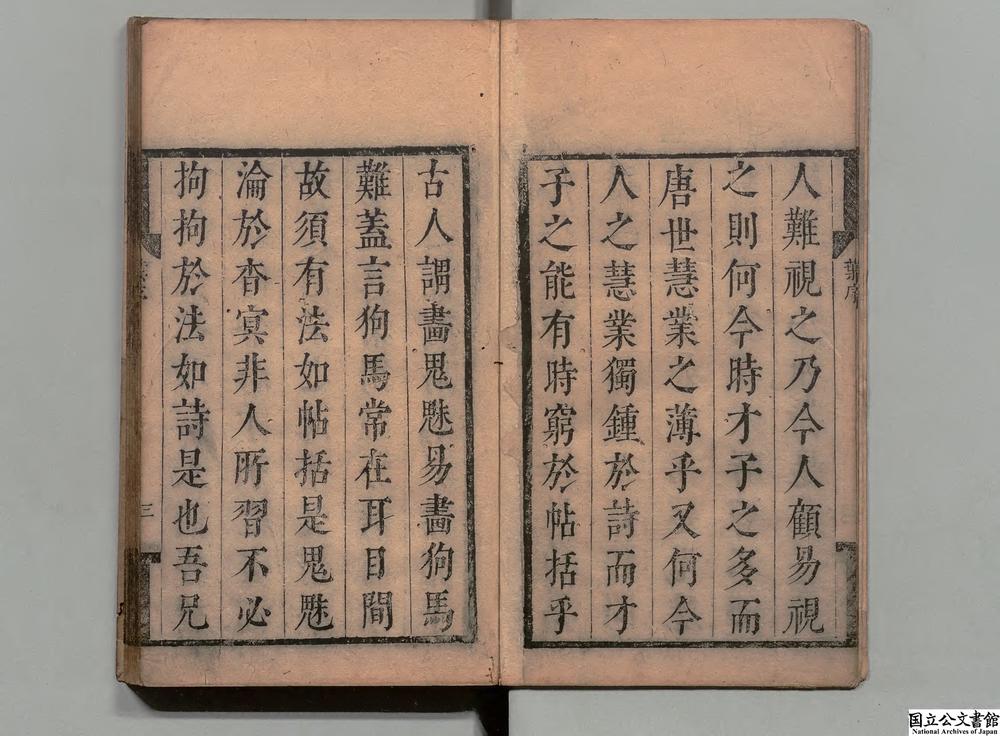 人難視之乃今人顧易視
之則何今時才子之多而
唐世慧業之薄乎又何今
人之慧業獨鍾於詩而才
子之能有時窮於帖括乎
古人謂畫鬼魅易畫狗馬
難蓋言狗馬常在耳目間
故須有法如帖括是鬼魅
淪於杳冥非人所習不必
拘拘於法如詩是也吾兄
三
国立公文書館
National Archives of Japan